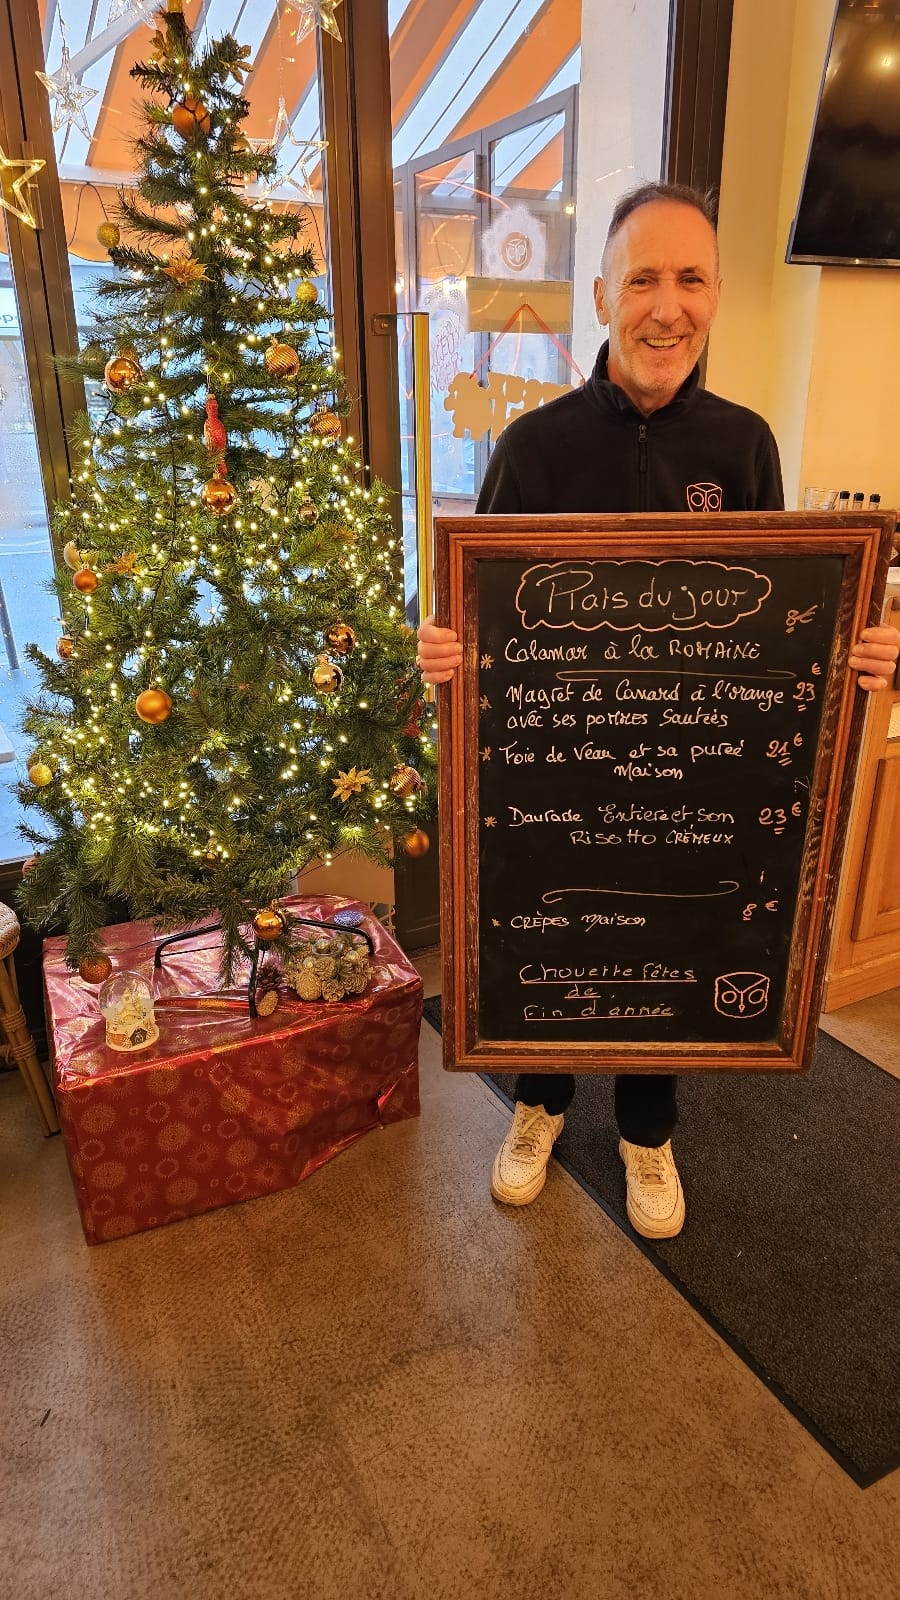 Plats du jour
* Calamar à la ROMAINE 8€
* Magret de Canard à l'orange 23€
avec ses pommes Sautées
* Foie de Veau et sa pureé 21€
Maison
* Daurade Entiere et son 23€
Risotto CRÉMEUX
* CRÈPES Maison 8€
Chouette fêtes
de
fin d'année